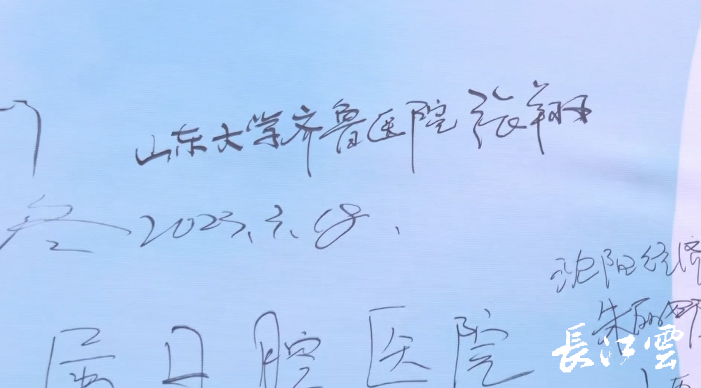 山东大学齐鲁医院 张翔
2023.3.18.
沈阳经济
朱丽
口腔医院
長江雲